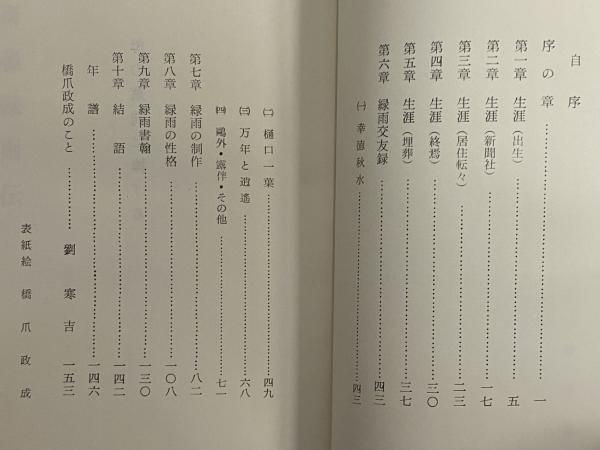 自序
序の章……………………………一
第一章 生涯(出生)……………………五
第二章 生涯(新聞社)…………………一七
第三章 生涯(居住転々)………………二三
第四章 生涯(終焉)……………………三〇
第五章 生涯(埋葬)……………………三七
第六章 緑雨交友録……………………四三
㈠ 幸徳秋水……………………四三
㈡ 樋口一葉……………………四九
㈢ 万年と逍遙……………………六八
㈣ 鷗外・露伴・その他……………七一
第七章 緑雨の制作……………………八二
第八章 緑雨の性格……………………一〇八
第九章 緑雨書翰……………………一三〇
第十章 結語……………………一四二
年譜……………………一四六
橋爪政成のこと……………劉寒吉 一五三
表紙絵 橋爪政成